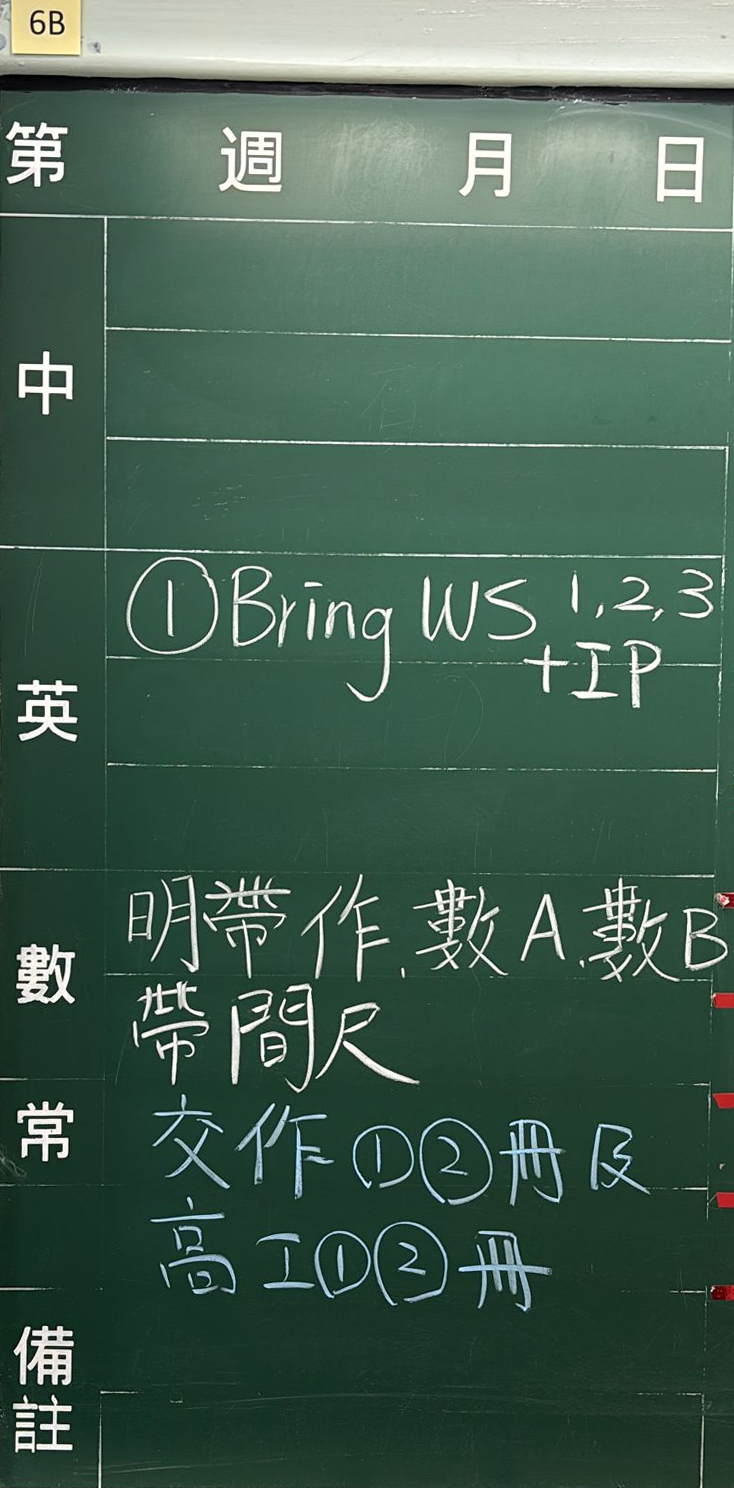 6B
第 週 月 日
中
英
①Bring WS 1,2,3
+IP
數
明帶作、數A、數B
帶間尺
常
交作①②冊及
高工①②冊
備註